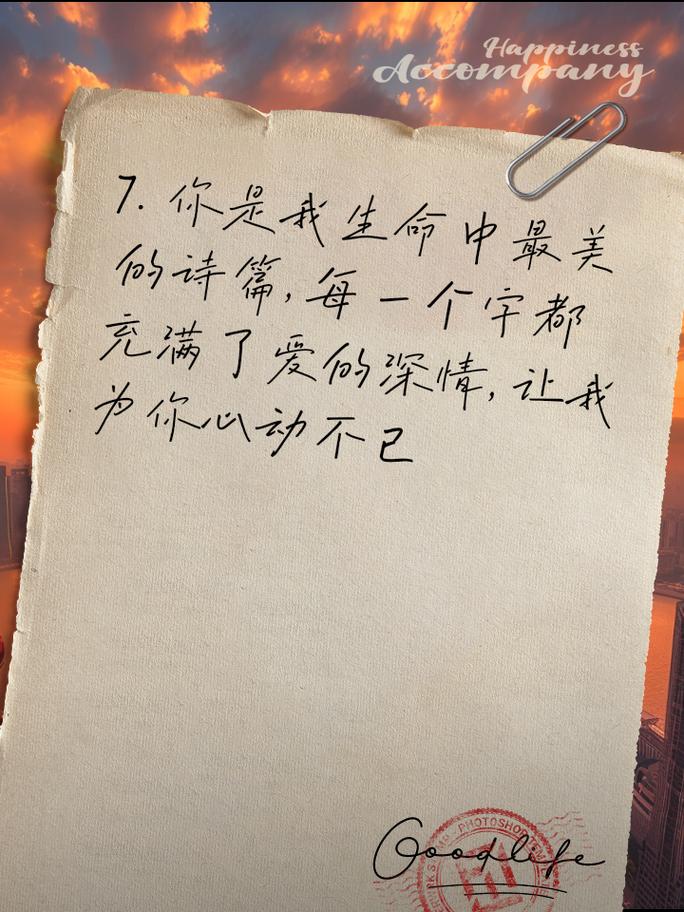 Happiness
Accompany
7. 你是我生命中最美
的诗篇,每一个字都
充满了爱的深情,让我
为你心动不已
PHOTOSHOP
Goodlife